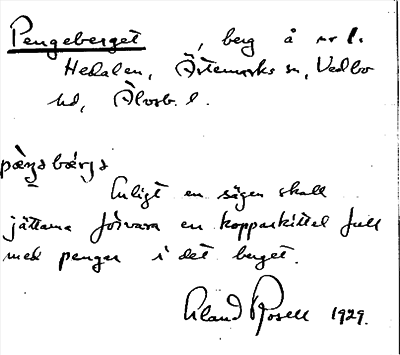 Pengeberget, berg å nr 1.
Hedalen, Ärtemarks sn, Vedbo
hd, Älvsb. l.
pæŋabærja
Enligt en sägen skall
jättarna förvara en kopparkittel full
med pengar i det berget.
Erland Rosell 1929.